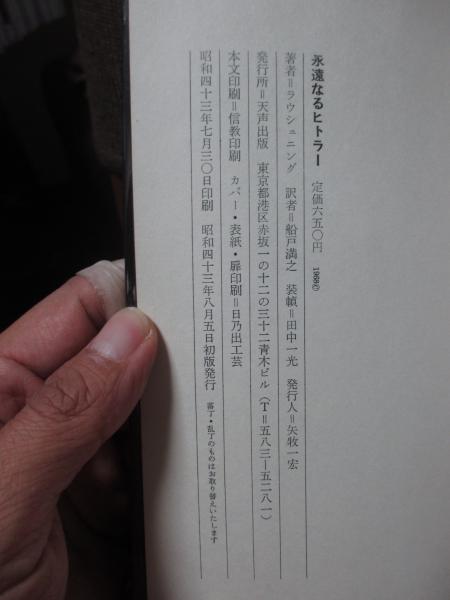 永遠なるヒトラー　定価六五〇円　1968©
著者＝ラウシュニング　訳者＝船戸満之　装幀＝田中一光　発行人＝矢牧一宏
発行所＝天声出版　東京都港区赤坂一の十二の三十二青木ビル（T＝五八三―五二八一）
本文印刷＝信教印刷　カバー・表紙・扉印刷＝日乃出工芸
昭和四十三年七月三〇日印刷　昭和四十三年八月五日初版発行　落丁・乱丁のものはお取り替えいたします